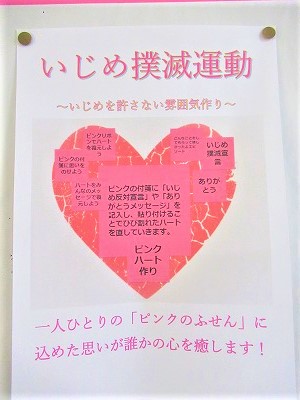 いじめ撲滅運動
～いじめを許さない雰囲気作り～
ピンクリボンでハートを復元しよう
いじめ撲滅宣言
ピンクの付箋に思いをのせよう
ありがとう
ハートをみんなのメッセージで復元しよう
ピンクの付箋に「いじ
め反対宣言」や「あり
がとうメッセージ」を
記入し、貼り付けるこ
とでひび割れたハート
を直していきます。
ピンク
ハート
作り
一人ひとりの「ピンクのふせん」に
込めた思いが誰かの心を癒します！